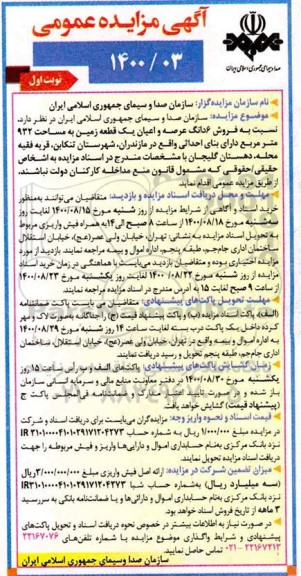 آگهی مزایده عمومی
۱۴۰۰/۰۳
صدا و سیمای جمهوری اسلامی ایران
نوبت اول
نام سازمان مزایده‌گزار: سازمان صدا و سیمای جمهوری اسلامی ایران
موضوع مزایده: سازمان صدا و سیمای جمهوری اسلامی ایران در نظر دارد،
نسبت به فروش ۶دانگ عرصه و اعیان یک قطعه زمین به مساحت ۹۳۲
متر مربع دارای بنای احداثی واقع در مازندران، شهرستان تنکابن، قریه فقیه
محله، دهستان گلیجان با مشخصات مندرج در اسناد مزایده به اشخاص
حقیقی/حقوقی که مشمول قانون منع مداخله کارکنان دولت نباشند،
از طریق مزایده عمومی اقدام نمایند.
مهلت و محل دریافت اسناد مزایده و بازدید: متقاضیان می‌توانند به‌منظور
خرید اسناد و آگاهی از شرایط مزایده از روز شنبه مورخ ۱۴۰۰/۰۸/۱۵ لغایت روز
شنبه مورخ ۱۴۰۰/۰۸/۲۲ از ساعت ۸ صبح الی ۱۴ به همراه فیش واریزی مربوط
به تحویل اسناد مزایده به نشانی تهران، خیابان ولی عصر(عج)، خیابان استقلال
ساختمان اداری جام‌جم، طبقه پنجم، اداره اموال و بیمه مراجعه نمایند. بازدید از مورد
مزایده اختیاری بوده و متقاضیان بازدید می‌بایست با هماهنگی در زمان خرید اسناد
مزایده از روز شنبه مورخ ۱۴۰۰/۰۸/۲۲ لغایت روز یکشنبه مورخ ۱۴۰۰/۰۸/۲۳
از ساعت ۹ صبح لغایت ۱۵ به آدرس مندرج در اسناد مزایده مراجعه نمایند.
مهلت تحویل پاکت‌های پیشنهادی: متقاضیان می بایست پاکت ضمانتنامه
(الف)، پاکت اسناد مزایده (ب) و پاکت پیشنهاد قیمت (ج) را جداگانه بصورت لاک و مهر
کرده داخل یک پاکت درب بسته لغایت ساعت ۱۴ روز شنبه مورخ ۱۴۰۰/۰۸/۲۹
به اداره اموال و بیمه واقع در تهران، خیابان ولی عصر(عج)، خیابان استقلال، ساختمان
اداری جام‌جم، طبقه پنجم تحویل و رسید دریافت نمایند.
زمان گشایش پاکت‌های پیشنهادی: پاکت‌های الف و ب راس ساعت ۱۵ روز
یکشنبه مورخ ۱۴۰۰/۰۸/۳۰ در دفتر معاونت منابع مالی و سرمایه انسانی سازمان
باز شده و در صورت
(پیشنهاد قیمت) گشایش خواهد یافت.
قیمت اسناد و نحوه واریز وجه: مزایده‌گران می‌بایست برای دریافت اسناد و شرکت
در مزایده مبلغ ۱/۰۰۰/۰۰۰ ریال به شماره حساب IR
نزد بانک مرکزی به‌نام خزانه‌داری اموال و دارایی‌ها واریز و فیش مربوطه را جهت
دریافت اسناد مزایده تحویل نمایند.
میزان تضمین شرکت در مزایده: ارائه اصل فیش واریزی مبلغ ۳/۰۰۰/۰۰۰/۰۰۰ریال
(سه میلیارد ریال) به‌شماره حساب شبا
نزد بانک مرکزی به‌نام خزانه‌داری اموال و دارائی‌ها و یا ضمانت‌نامه بانکی به سررسید
۳ ماهه از تاریخ فروش اسناد خواهد بود.
در صورت نیاز به اطلاعات بیشتر در خصوص نحوه دریافت اسناد و تحویل پاکت‌های
پیشنهادی و شرایط واگذاری موضوع مزایده با شماره تلفن‌های ۲۲۱۶۷۰۷۶
۰۲۱-۲۲۱۶۷۲۱۳ تماس حاصل نمایید.
سازمان صدا وسیمای جمهوری اسلامی ایران